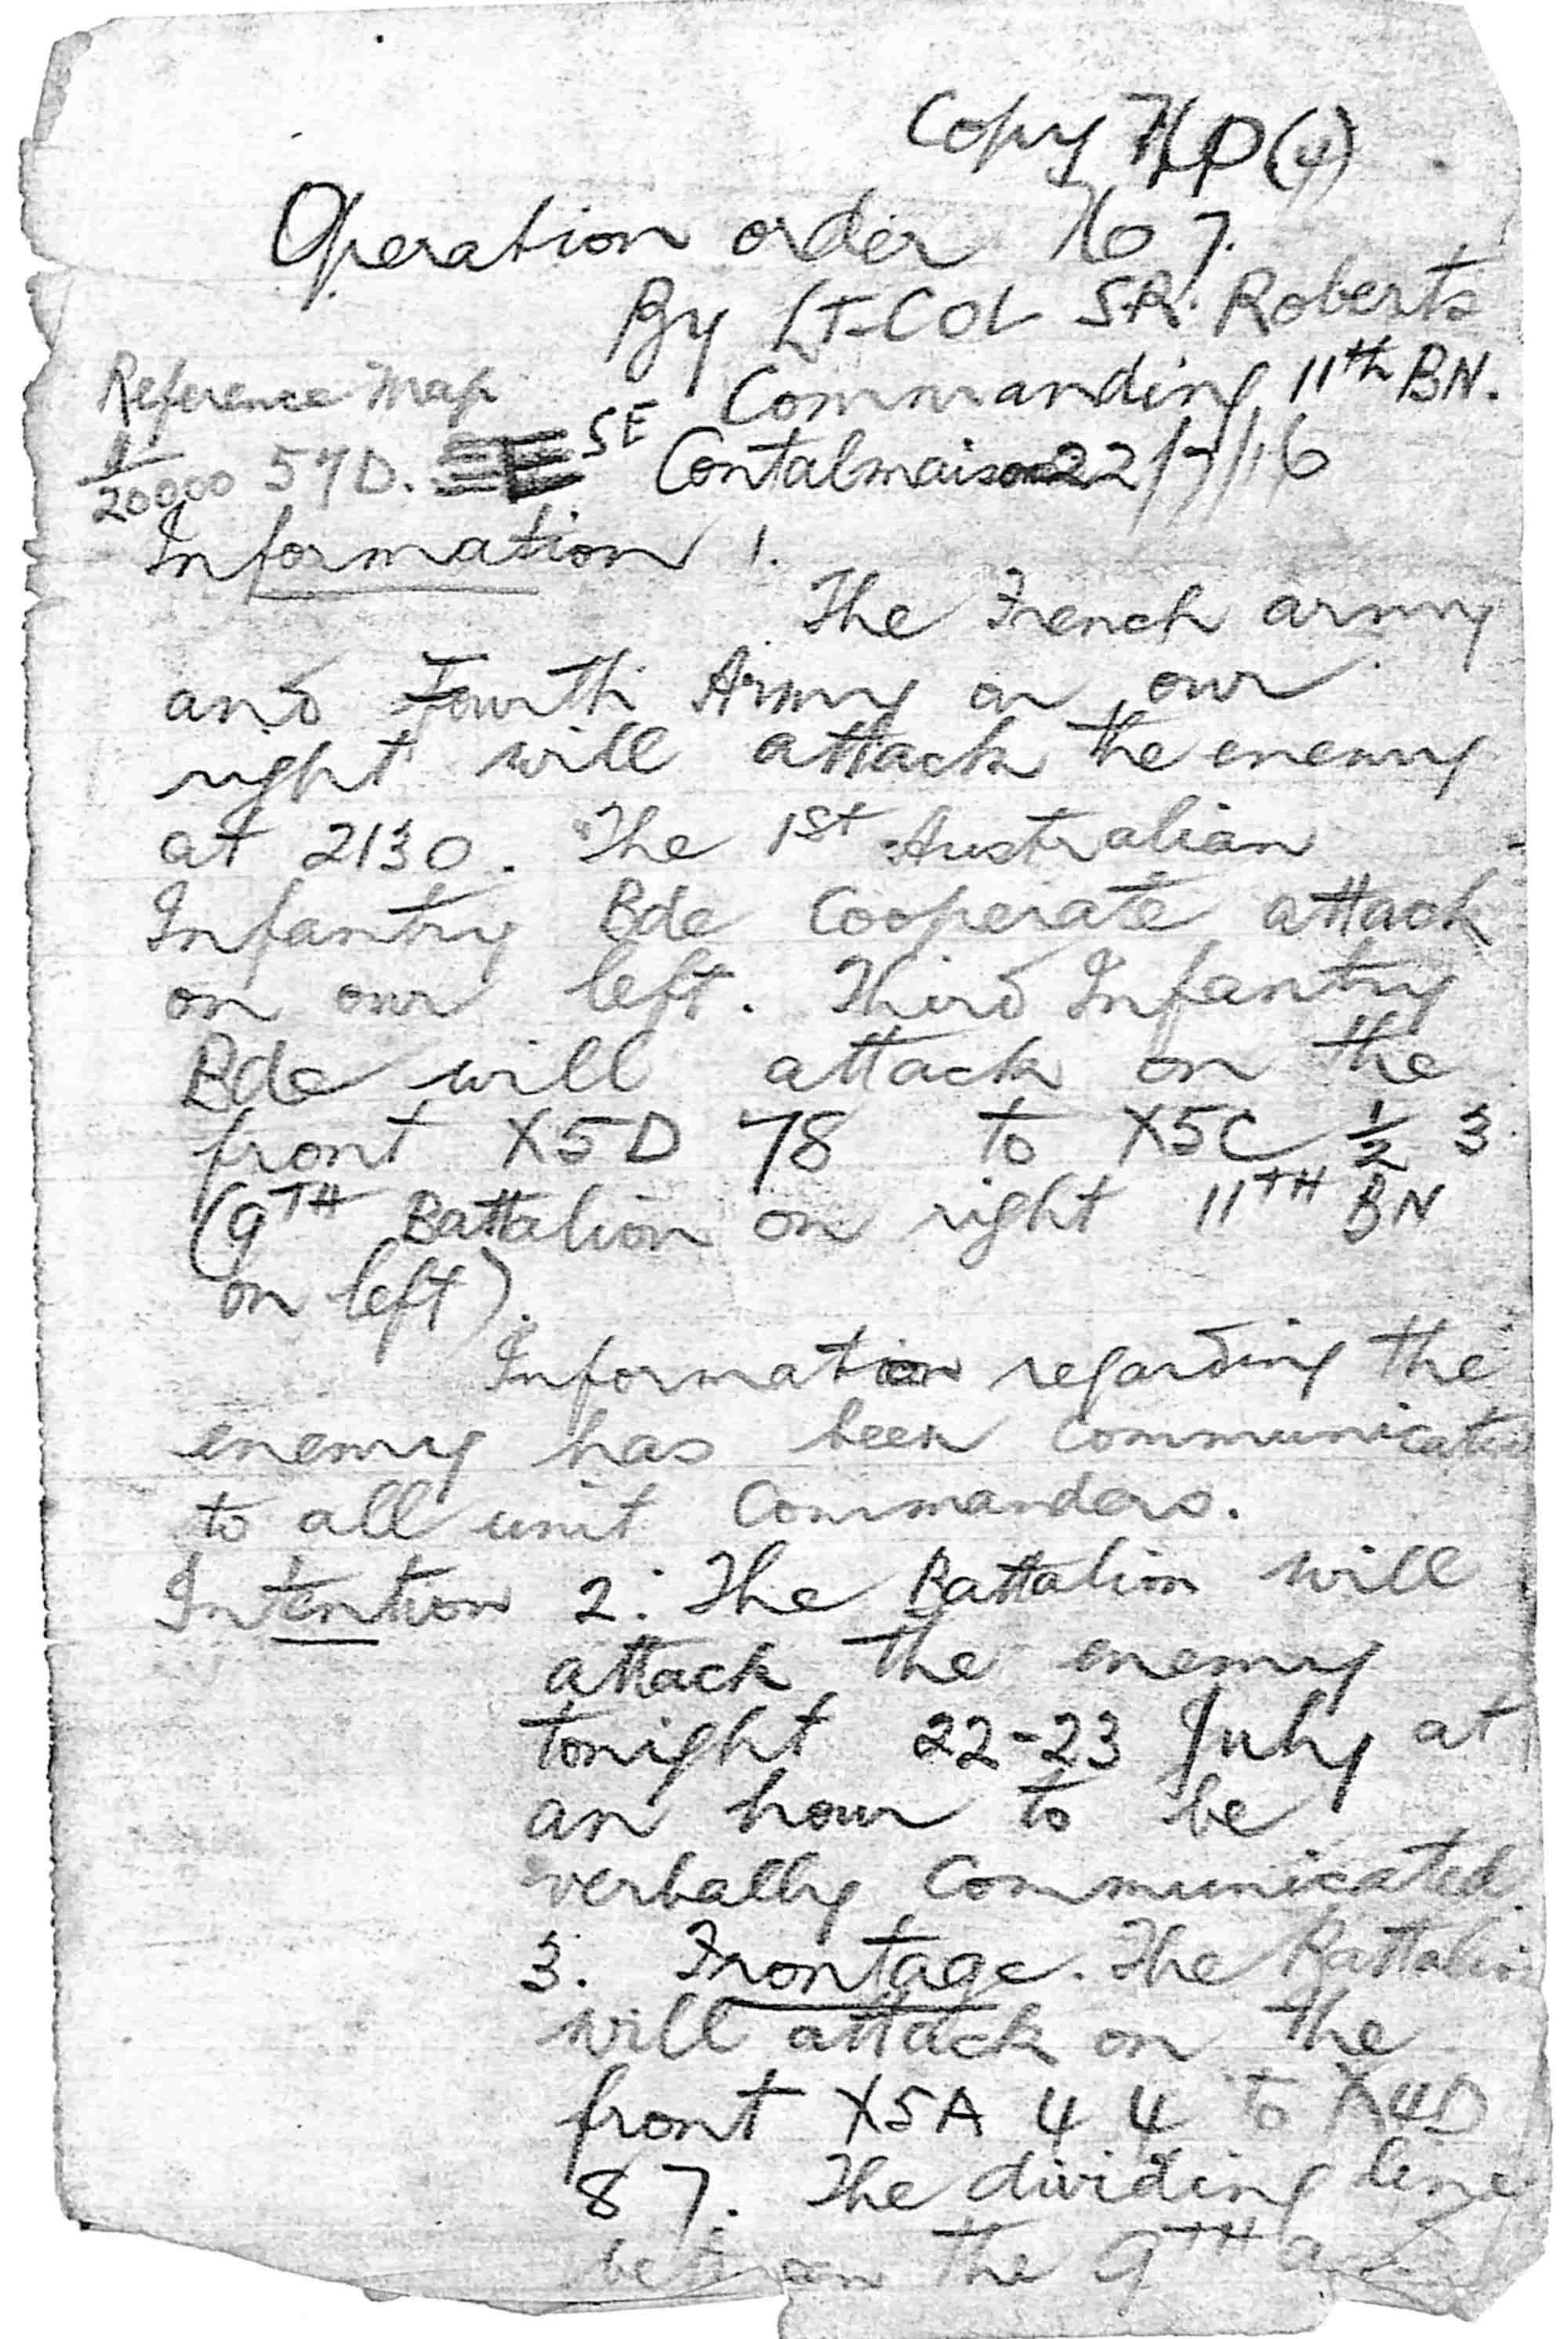 Copy No (4)
Operation order No 7.
By Lt-Col SR. Roberts
Commanding 11th BN.
Reference Map
1/20000 57D. SE
Contalmaison 22/7/16
Information 1.
The French army
and Fourth Army on our
right will attack the enemy
at 2130. The 1st Australian
Infantry Bde Cooperate attack
on our left. Third Infantry
Bde will attack on the
front X5D 78 to X5C ½ 3
(9TH Battalion on right 11TH BN
on left).
Information regarding the
enemy has been communicated
to all unit Commanders.
Intention 2. The Battalion will
attack the enemy
tonight 22-23 July at
an hour to be
verbally Communicated.
3. Frontage. The Battalion
will attack on the
front X5A 4 4 to X4D
8 7. The dividing line
between the 9TH